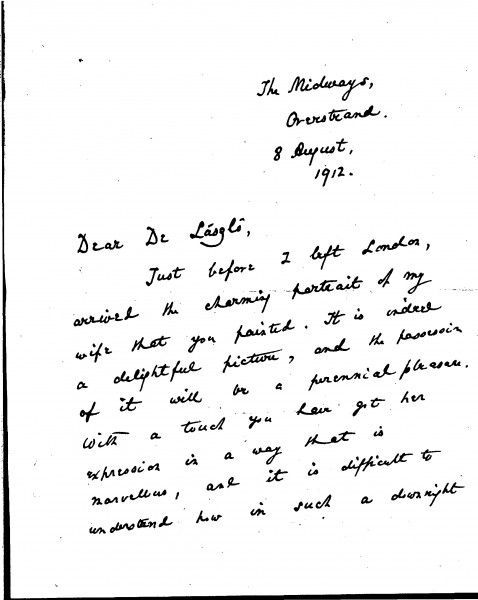 The Midways,
Overstrand.
8 August,
1912.
Dear De László,
Just before I left London,
arrived the charming portrait of my
wife that you painted. It is indeed
a delightful picture, and the possession
of it will be a perennial pleasure.
With a touch you have got her
expression in a way that is
marvellous, and it is difficult to
understand how in such a downright